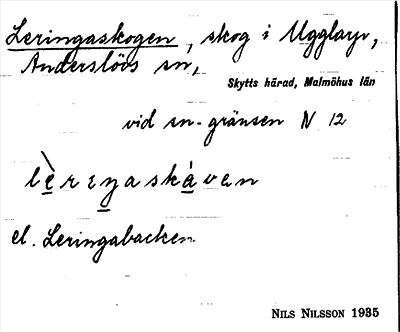 Leringaskogen, skog i Ugglarp,
Anderslövs sn,
Skytts härad, Malmöhus län
vid sn-gränsen N 12
lèrıŋaskàven
el. Leringabacken
NILS NILSSON 1935